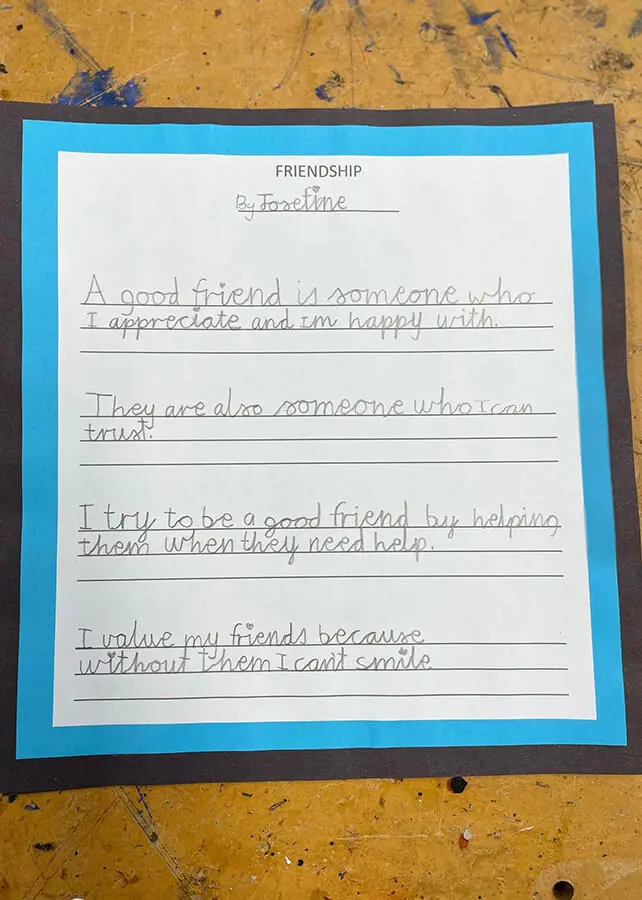 FRIENDSHIP
By Josefine
A good friend is someone who
I appreciate and im happy with.
They are also someone who I can
trust.
I try to be a good friend by helping
them when they need help.
I value my friends because
without them I can't smile